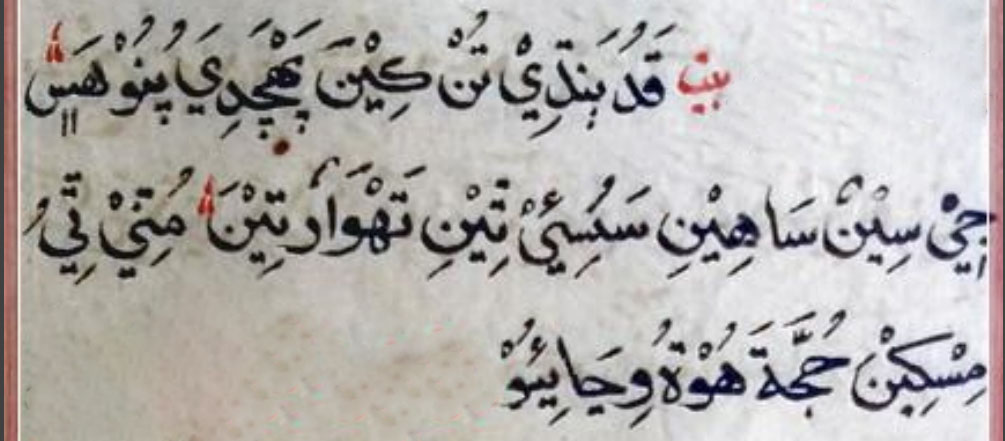 بيت قَدُ بَنڌِيْ تُنْ ڪِيْنَ پَهْچَدِيَ پُنُوْ هَسٍ
جٖيْ سِيْنْ سَاهِيْنِ سَسُئِيْ تِيْنِ تَهْوَارَ تِيْنَ مُتِيْ تِيُ
مِسْڪِيْنْ حُجَّةَ هُوْةُ وِچَائِيُوْ